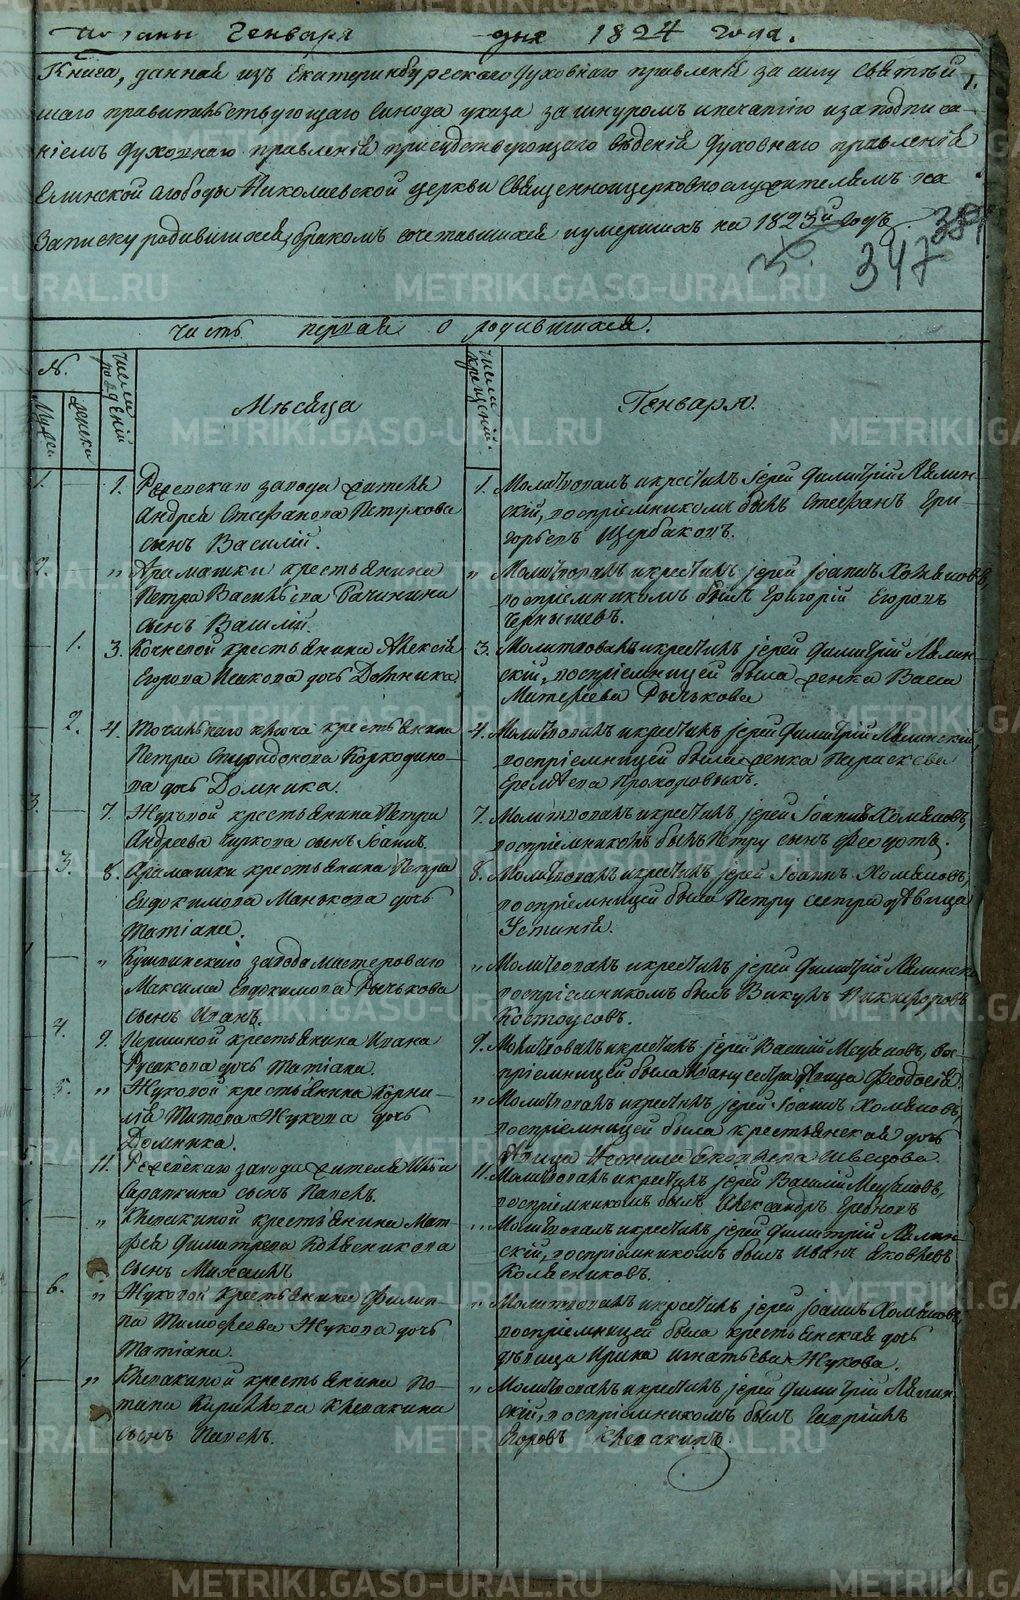 Поданы Генваря дня 1824 года.
Книга, данная изъ Екатеринбургскаго Духовнаго правленія за силу Святѣй
шаго правительствующаго Синода указа за шнуромъ и печатію и за подписа-
ніемъ Духовнаго правленія присудствующаго вѣденія Духовнаго правленія
слободы Николаевской церкви Священноицерковнослужителямъ на
Записку родившихся, бракомъ сочетавшихся и умершихъ на 1823й годъ.
1.
347
389
часть первая о родившихся.
№.
числа рожденій
числа крещеній.
Мѣсяца
Генваря.
1. 1. Режевскаго завода жителя
Андрея Стефанова Петухова
сынъ Василій.
1. Молитвовалъ и крестилъ іерей Димитрій Лялин-
скій, воспріемникомъ былъ Стефанъ Гри-
горьевъ Щербаковъ.
2. " Арамашки крестьянина
Петра Васильева Бачинина
сынъ Василій.
" Молитвовалъ и крестилъ іерей Іоаннъ Хомяковъ,
воспріемникомъ былъ Григорій Егоровъ
Чернышевъ.
1. 3. Кочневой крестьянина Алексѣя
Егорова дочь Домника
3. Молитвовалъ и крестилъ іерей Димитрій Лялин-
скій, воспріемницей была женка Васса
Матвеева Рычькова
2. 4. Точильнаго ключа крестьянина
Петра Спиридонова Коркодино-
ва дочь Домника.
4. Молитвовалъ и крестилъ іерей Димитрій Лялинскій,
воспріемницей была женка Параскева
Еремѣева Прохоровыхъ.
3. 7. Жуковой крестьянина Петра
Андреева сынъ Іоаннъ.
7. Молитвовалъ и крестилъ іерей Іоаннъ Хомяковъ,
воспріемникомъ былъ Петру сынъ Федотъ.
3. 8. Арамашки крестьянина Петра
Евдокимова Манькова дочь
Татіана.
8. Молитвовалъ и крестилъ іерей Іоаннъ Хомяковъ,
воспріемницей была Петру сестра дѣвица
Устинія.
4. " Кушвинскаго завода мастероваго
Максима Евдокимова Рычькова
сынъ Иванъ.
" Молитвовалъ и крестилъ іерей Димитрій Лялинскій
воспріемникомъ былъ Викулъ Никифоровъ
Костоусовъ.
4. 9. Першиной крестьянина Ивана
Русакова дочь Татіана.
9. Молитвовалъ и крестилъ іерей Василій Мецаловъ, вос-
пріемницей была Ивану сестра дѣвица Феодосія.
5. " Жуковой крестьянина Корни-
лія Титова Жукова дочь
Домника.
" Молитвовалъ и крестилъ іерей Іоаннъ Хомяковъ,
воспріемницей была крестьянская дочь
дѣвица Неонила Яковлева Швецова.
5. 11. Режевскаго завода жителя Ильи
Сараткина сынъ Павелъ.
11. Молитвовалъ и крестилъ іерей Василій Мецаловъ,
воспріемникомъ былъ Александръ
" Клевакиной крестьянина Мат-
фея Димитреева Колясникова
сынъ Михаилъ
" Молитвовалъ и крестилъ іерей Димитрій Лялин-
скій, воспріемникомъ былъ Иванъ Яковлевъ
Колясниковъ.
6. " Жуковой крестьянина Филип-
па Тимофеева Жукова дочь
Татіана.
" Молитвовалъ и крестилъ іерей Іоаннъ Хомяковъ,
воспріемницей была крестьянская дочь
дѣвица Ирина Игнатьева Жукова.
" Клевакиной крестьянина По-
тапа Кирилова Клевакина
сынъ Павелъ.
" Молитвовалъ и крестилъ іерей Димитрій Лялин-
скій, воспріемникомъ былъ Гавріилъ
Егоровъ Клевакинъ.
METRIKI.GASO-URAL.RU